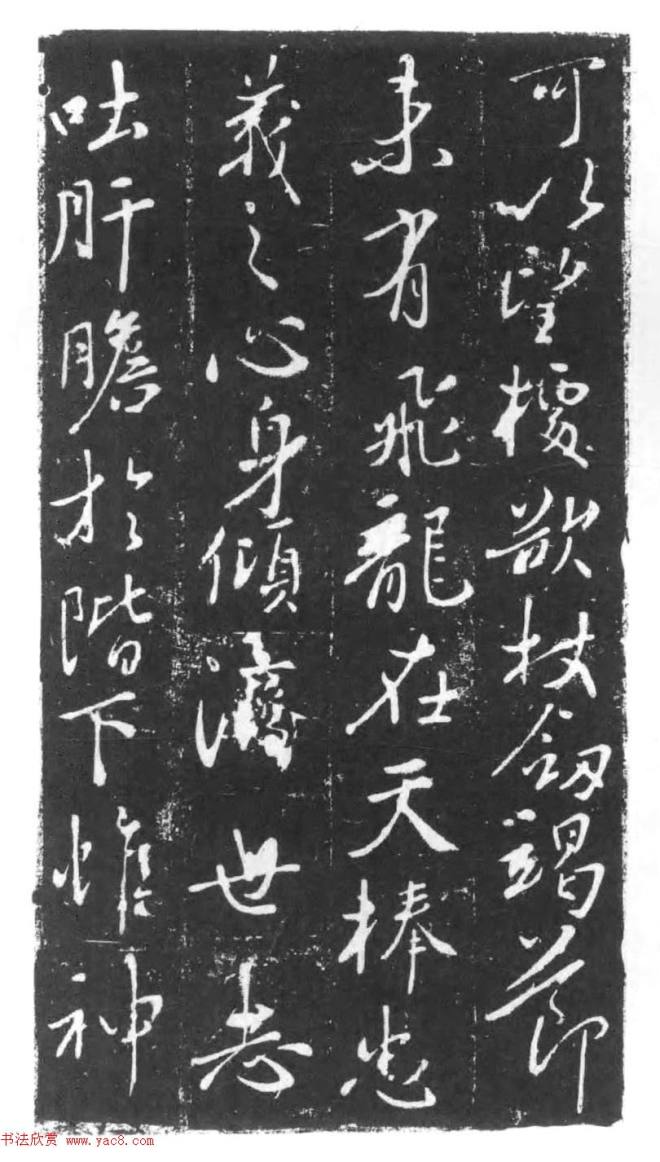 可以望欲杖劒竭節
未有飛龍在天棒忠
義之心身傾濟世志
吐肝膽於階下惟神
书法欣赏 www.yac8.com